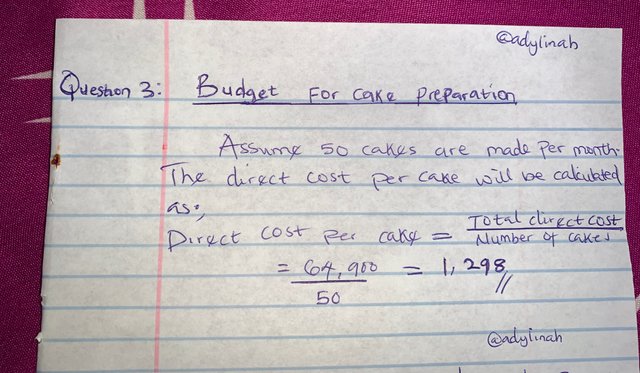 @adylinah
Question 3: Budget For cake Preparation
Assume 50 cakes are made Per month.
The direct cost per cake will be calculated
as:,
Direct cost Per cake = Total direct cost
Number of cakes
= 64,900 = 1,298
50
@adylinah